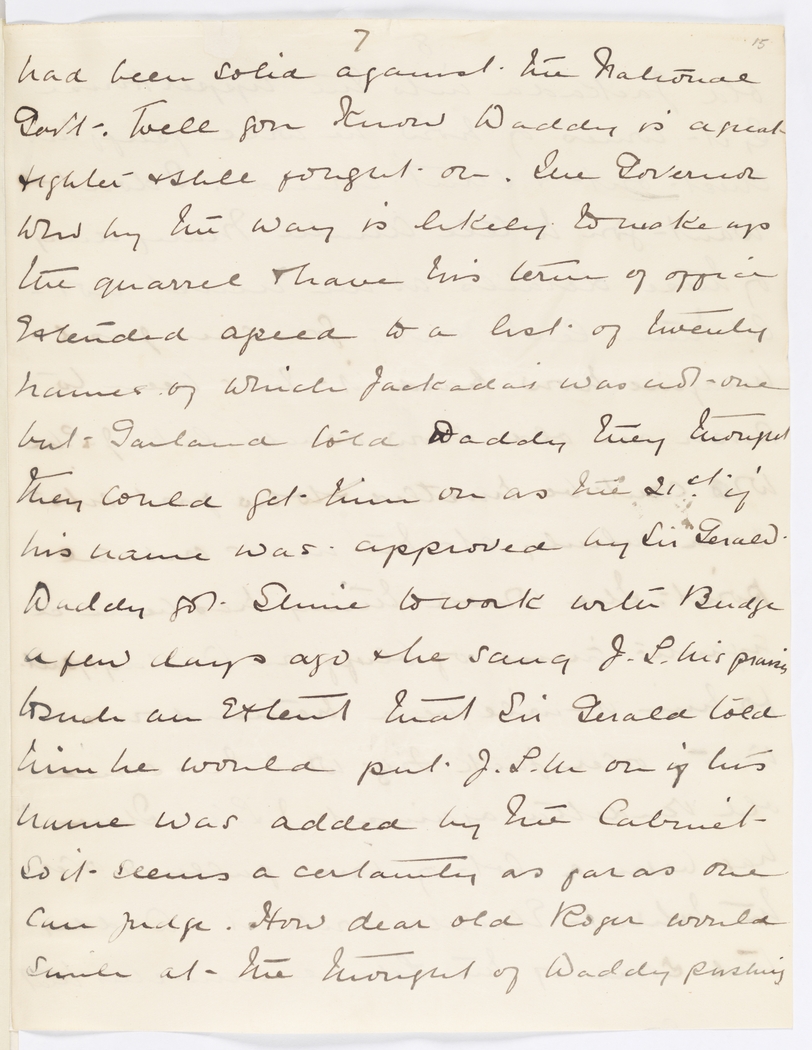 7
15
had been solid against the National
Gov't. Well you know Daddy is a great
fighter & still fought on. The Governor
who by the way is likely to make up
the quarrel & have his term of office
Extended agreed to a list of twenty
names of which Jackadas was not one
but Garland told Daddy they thought
they could get him on as the 21st if
his name was approved by Sir Gerald.
Daddy got to work with Budge
a few days ago & he sang J.L.M's praises
to such an Extent that Sir Gerald told
him he would put J.L.M on if his
name was added by the Cabinet
So it seems a certainty as far as one
can judge. How dear old Roger would
smile at the thought of Daddy pushing